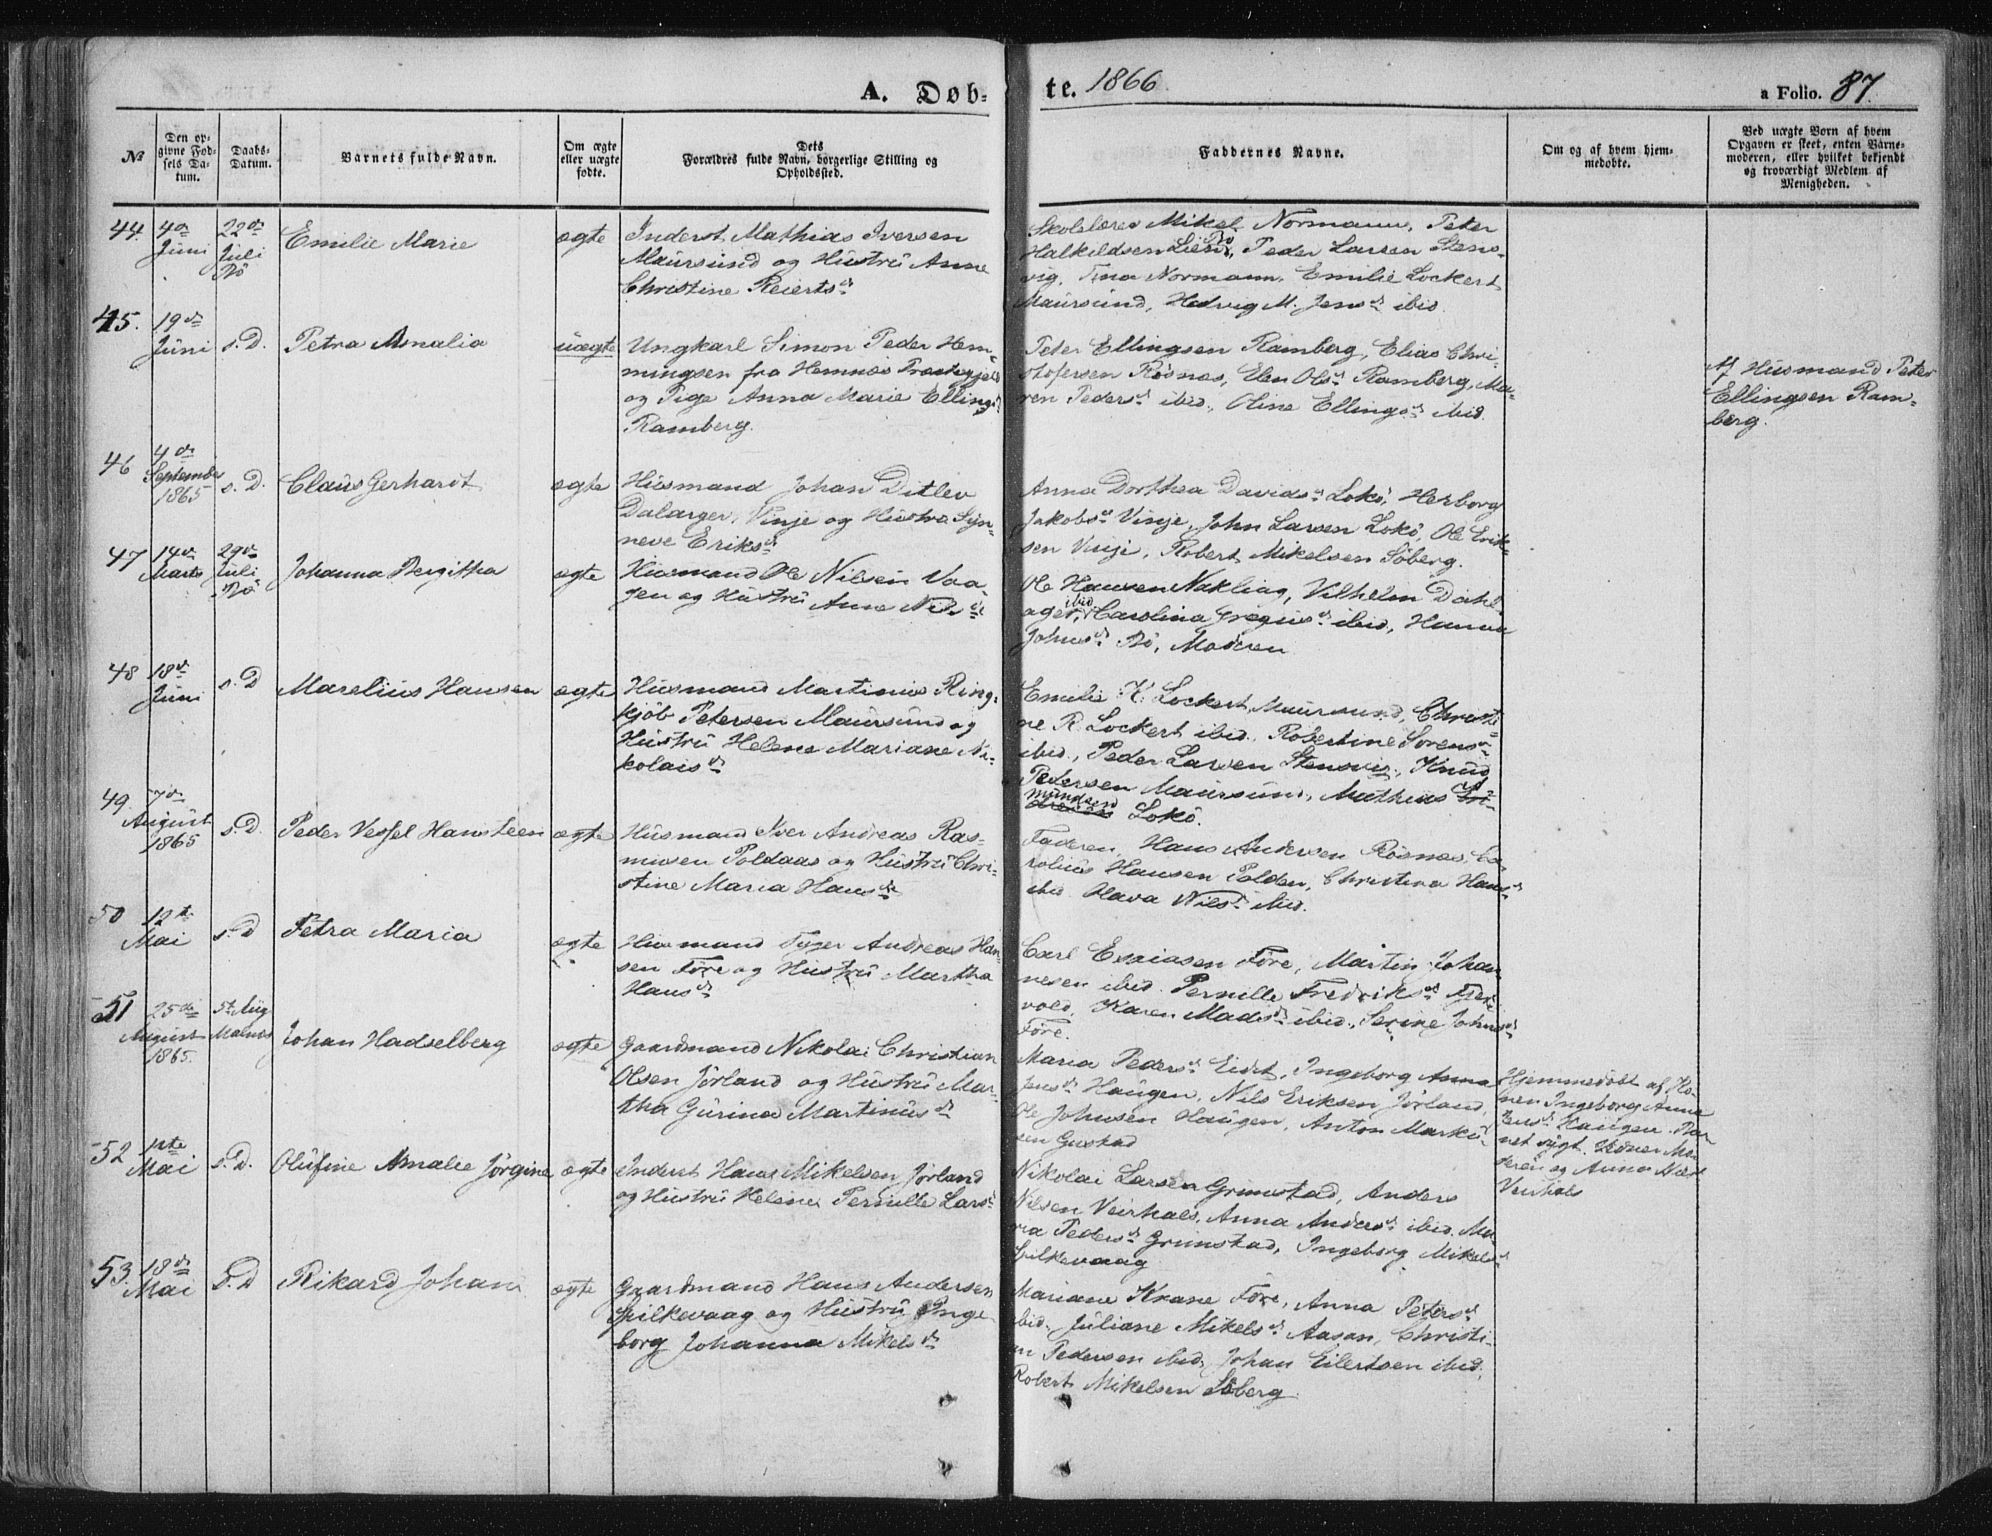 A. Døb-
te. 1866
a Folio. 87.
№
Den op-
givne Fød-
sels Da-
tum.
Daabs-
Datum.
Barnets fulde Navn.
Om ægte
eller uægte
fødte.
Dets
Forældres fulde Navn, borgerlige Stilling og
Opholdssted.
Faddernes Navne.
Om og af hvem hjem-
medøbte.
Ved uægte Børn af hvem
Opgaven er skeet, enten Barne-
moderen, eller hvilket bekjendt
og troværdigt Medlem af
Menigheden.
44.
4de
Juni
22de
Juli
Bö
Emilie Marie
ægte
Inderst Mathias Iversen
Maursund og Hustru Anne
Christine Reiertsd
Skolelærer Mikel Normann, Peter
Halkildsen Lien, Peder Larsen Stens-
vig, Tina Normann, Emilie Lockert
Maursund, Hedvig M. Jensd ibid.
45.
19de
Juni
s. D.
Petra Amalia
uægte
Ungkarl Simon Peder Hem-
mingsen fra Hemnæs Præstegjeld
og Pige Anna Marie Ellingsd
Ramberg.
Peter Ellingsen Ramberg, Elias Chri-
stofersen Rösnæs, Elen Olsd Ramberg, Ma-
ren Pedersd ibid., Oline Ellingsd ibid.
Af Husmand Peter
Ellingsen Ram-
berg.
46
4de
September
1865
s. D.
Claus Gerhardt
ægte
Husmand Johan Ditlev
Dalager, Vinje og Hustru Syn-
neve Eriksd
Anna Dorthea Davidsd Lokö, Herborg
Jakobsd Vinje, John Larsen Lokö, Ole Erik-
sen Vinje, Robert Mikelsen Söberg.
47
14de
Marts
29de
Juli
Bö
Johanna Bergitha
ægte
Husmand Ole Nilsen Vaa-
gen og Hustru Anne Nilsd
Ole Hansen Nakling, Vilhelm Dahl-
ager, ibid Carolina Gregusd ibid, Hanna
Johnsd Bö, Moderen
48
18de
Juni
s. D
Marelius Hansen
ægte
Husmand Martinus Ring-
kjöb Petersen Maursund og
Hustru Helene Mariane Ni-
kolaisd
Emilie K. Lockert Maursund, Christi-
ne R. Lockert ibid. Robertine Sörensd
ibid., Peder Larsen Stensvig, Knud
Pedersen Maursund, Mathias
mundsen
Lokö.
49.
7de
August
1865
s. D.
Peder Vessel Hansteen
ægte
Husmand Iver Andreas Ras-
musen Poldaas og Hustru Chri-
stine Maria Hansd
Faderen, Hans Andersen Rösnæs, Ca-
rolius Hansen Polden, Christina Hansd
ibid. Olava Nilsd ibid.
50
12te
Mai
s. D
Petra Maria
ægte
Husmand Tyger Andreas Han-
sen Före og Hustru Martha
Hansd
Carl Esaiasen Före, Martin Johan-
nesen ibid. Pernille Fredriksd Fjer-
vold, Karen Madsd ibid., Serine Johnsd
Före.
51
25de
August
1865.
5te Aug
Malnes
Johan Hadselberg
ægte
Gaardmand Nikolai Christian
Olsen Jörland og Hustru Mar-
tha Gurina Martinusd
Maria Pedersd Eidet, Ingeborg Anna
Jensd Haugen, Nils Eriksen Jörland,
Ole Johnsen Haugen, Anton Marku-
sen Gustad
Hjemmedöbt af Ko-
nen Ingeborg Anna
Jensd Haugen. Bar-
net sygt. Vidner Mo-
deren og Anna
Veirhals
52
1ste
Mai
s. D.
Olufine Amalie Jörgine
ægte
Inderst Hans Mikelsen Jörland
og Hustru Helene Pernille Larsd
Nikolai Larsen Grimstad, Anders
Nilsen Veirhals, Anna Andersd ibid. Ma-
ria Pedersd Grimstad, Ingeborg Mikelsd
Spilkevaag
53.
18de
Mai
s. D
Rikard Johan
ægte
Gaardmand Hans Andersen
Spilkevaag og Hustru Inge
borg Johanna Mikelsd
Mariane Krane Före, Anna Petersd
ibid. Juliane Mikelsd Aasan, Christi-
an Pedersen ibid. Johan Eilertsen ibid.
Robert Mikelsen Söberg.